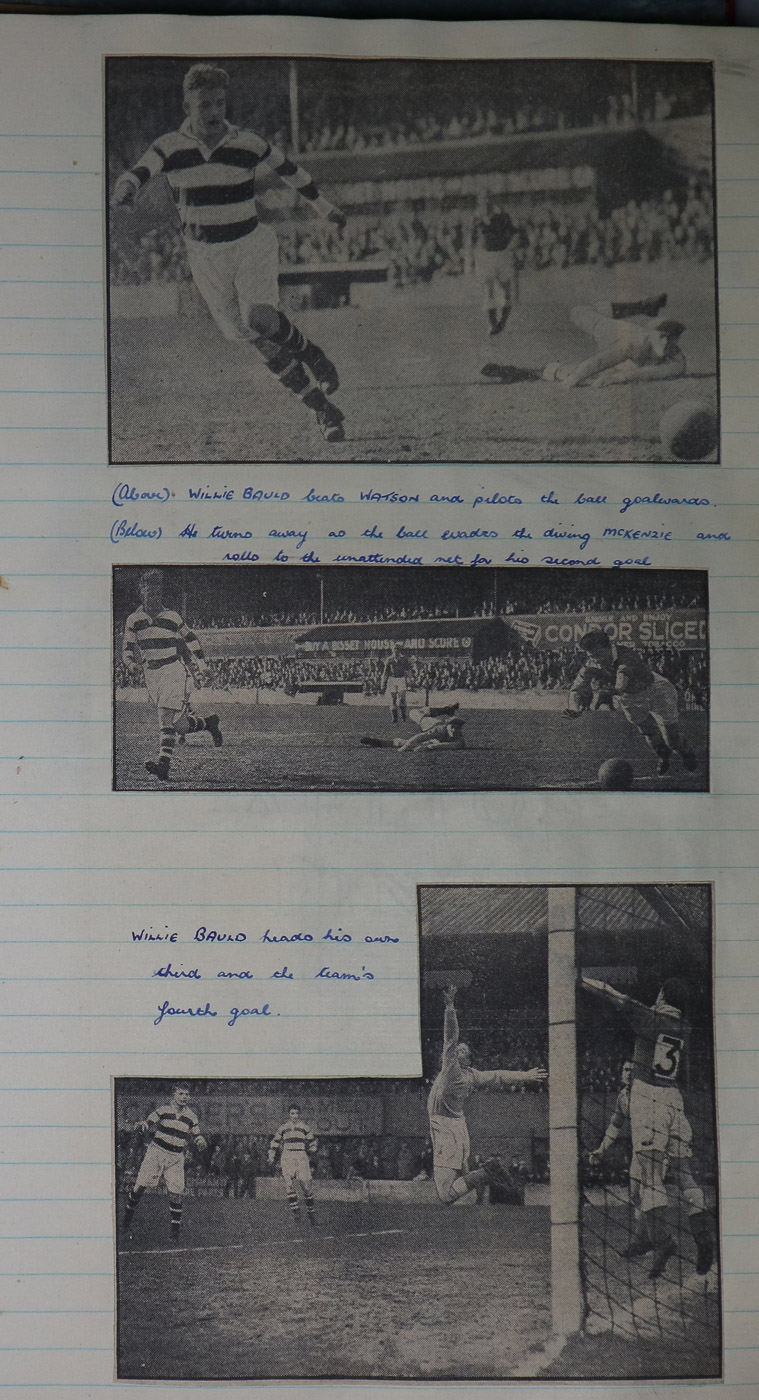 (Above). WILLIE BAULD beats WATSON and pilots the ball goalwards.
(Below) He turns away as the ball evades the diving MCKENZIE and
rolls to the unattended net for his second goal
CONDOR SLICED
AND SCORE
WILLIE BAULD heads his own
third and the team's
fourth goal.
3